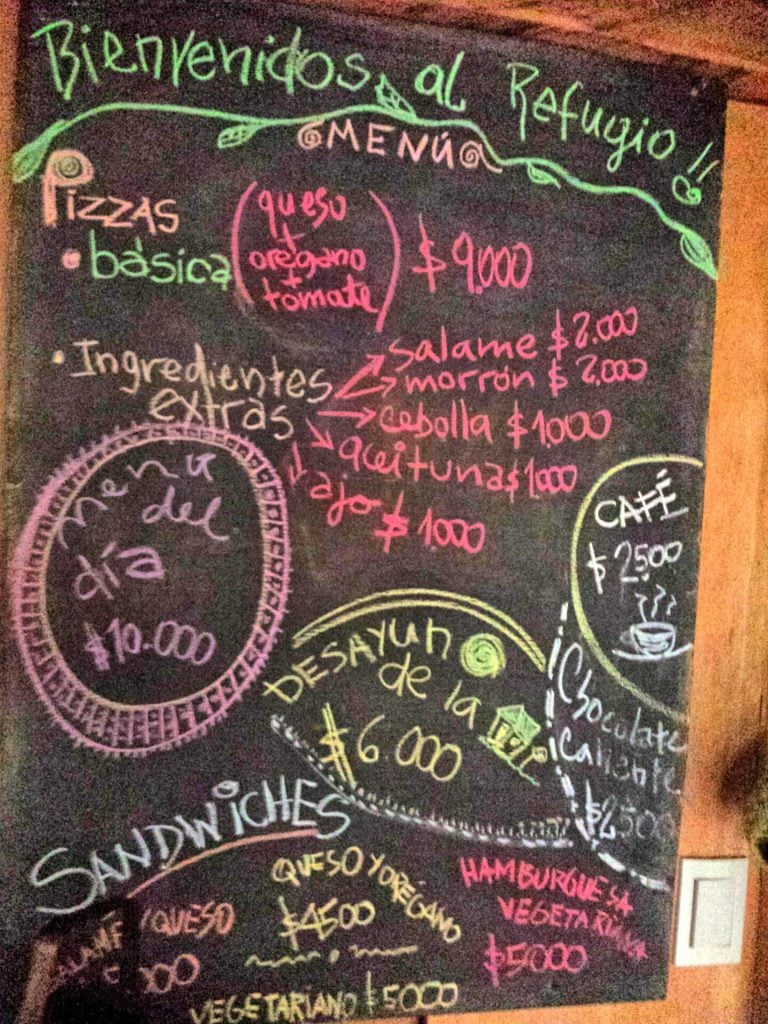 Bienvenidos al Refugio!!
MENÚ
PIZZAS
• básica (queso + orégano + tomate) $9.000
• Ingredientes extras
salame $2.000
morrón $2.000
cebolla $1.000
aceitunas $1.000
ajo $1.000
menu
del
día
$10.000
CAFÉ
$2500
DESAYUNO
de la
$6.000
Chocolate
caliente
$2500
SANDWICHES
Y QUESO
QUESO Y ORÉGANO
$4500
HAMBURGUESA
VEGETARIANA
$5000
VEGETARIANO $5000